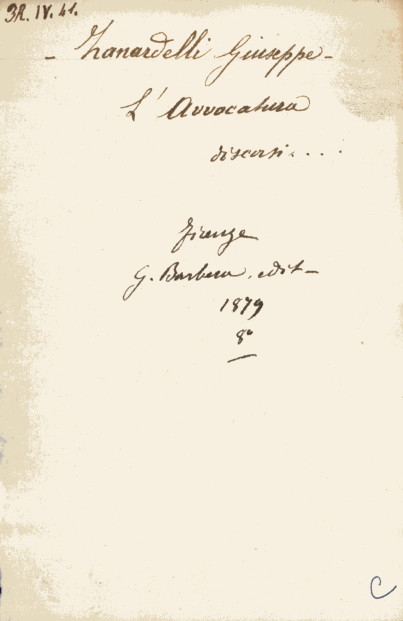 3R. IV. 41.
- Zanardelli Giuseppe -
L' Avvocatura
discorsi. . . .
Firenze
G. Barbera, edit -
1879
8°
C